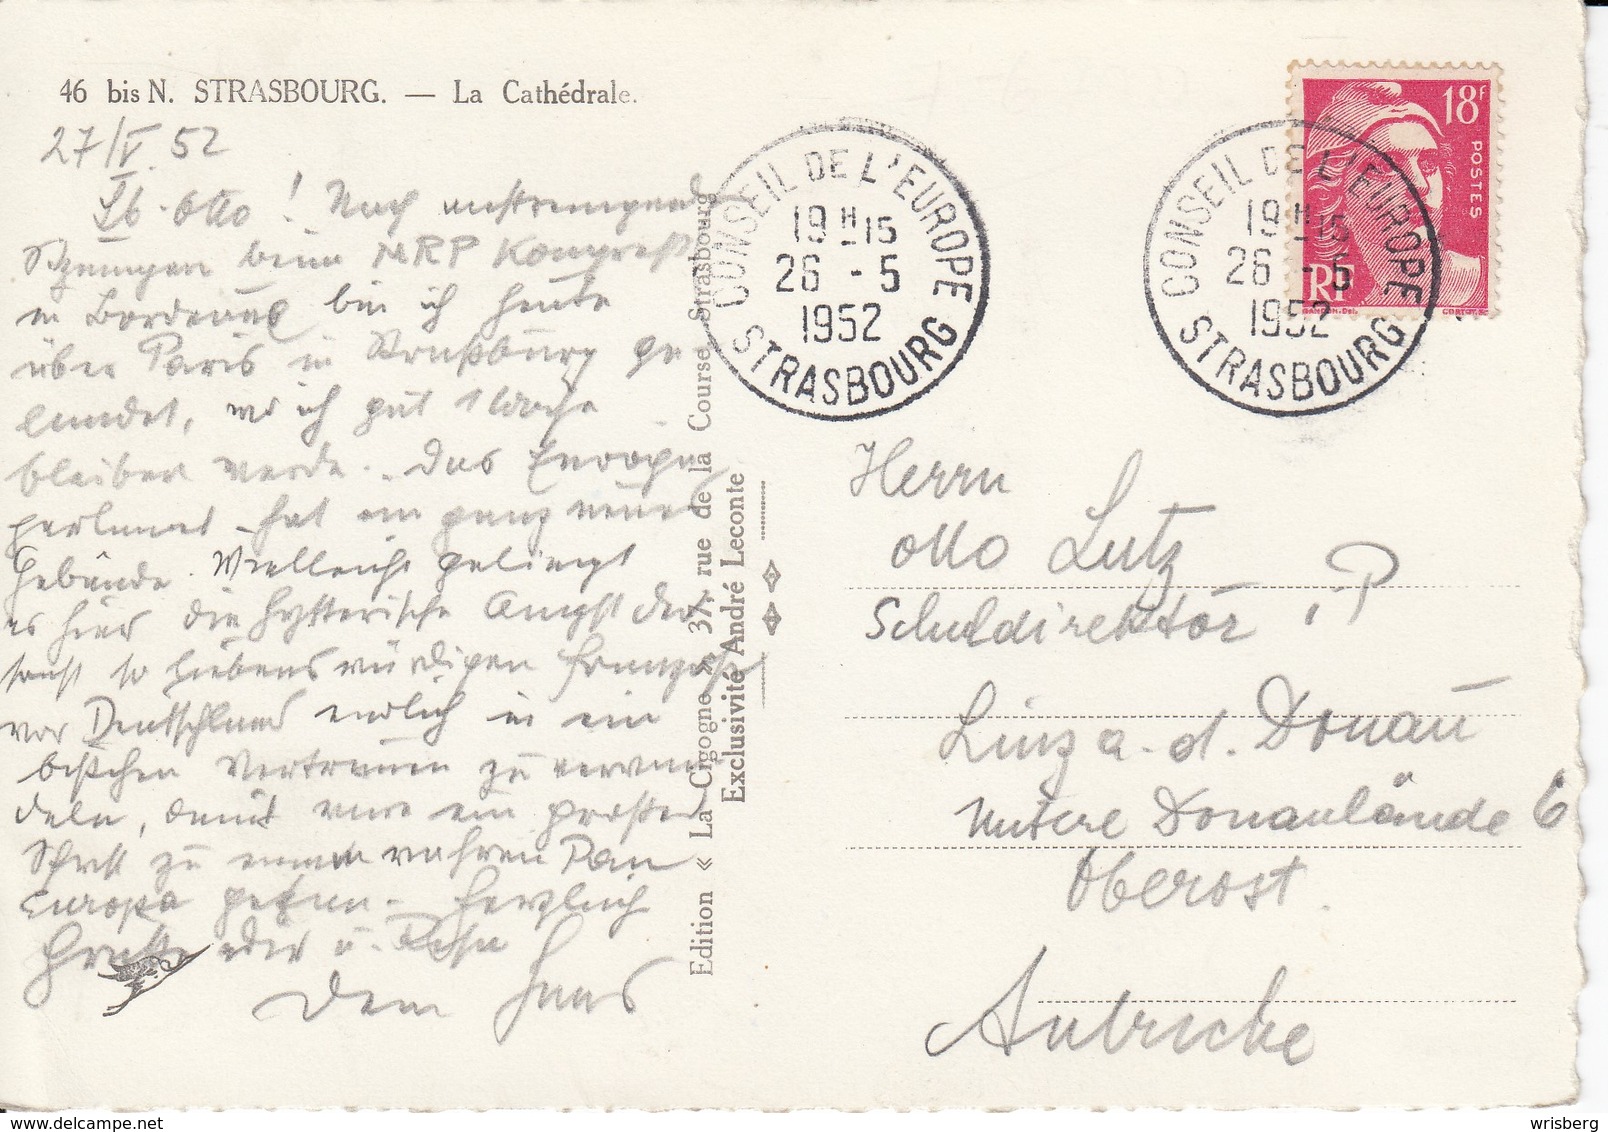 46 bis N. STRASBOURG. — La Cathédrale.
27/V. 52
Lb. Otto! Nach anstrengenden
Sitzungen beim MRP Kongreß
in Bordeaux bin ich heute
über Paris in Straßburg ge-
landet, wo ich gut 1 Woche
bleiben werde. Das Europa
parlament hat ein ganz neues
Gebäude. Vielleicht gelingt
es hier die hysterische Angst der
sonst so liebenswürdigen Franzosen
vor Deutschland endlich in ein
bißchen Vertrauen zu verwan-
deln, damit wäre ein großer
Schritt zu einem wahren Pan
Europa getan. Herzlich
Grüße u.
Dein Hans
Edition « La Cigogne » 37, rue de la Course Strasbourg
Exclusivité André Leconte
CONSEIL DE L'EUROPE
19 H 15
26 - 5
1952
STRASBOURG
CONSEIL DE L'EUROPE
19 H 15
26 - 5
1952
STRASBOURG
18F
POSTES
RF
GANDON-Del.
CORTOT.SC
Herrn
Otto Lutz
Schuldirektor i. P.
Linz a. d. Donau
Untere Donaulände 6
Oberöst.
Autriche
wrisberg